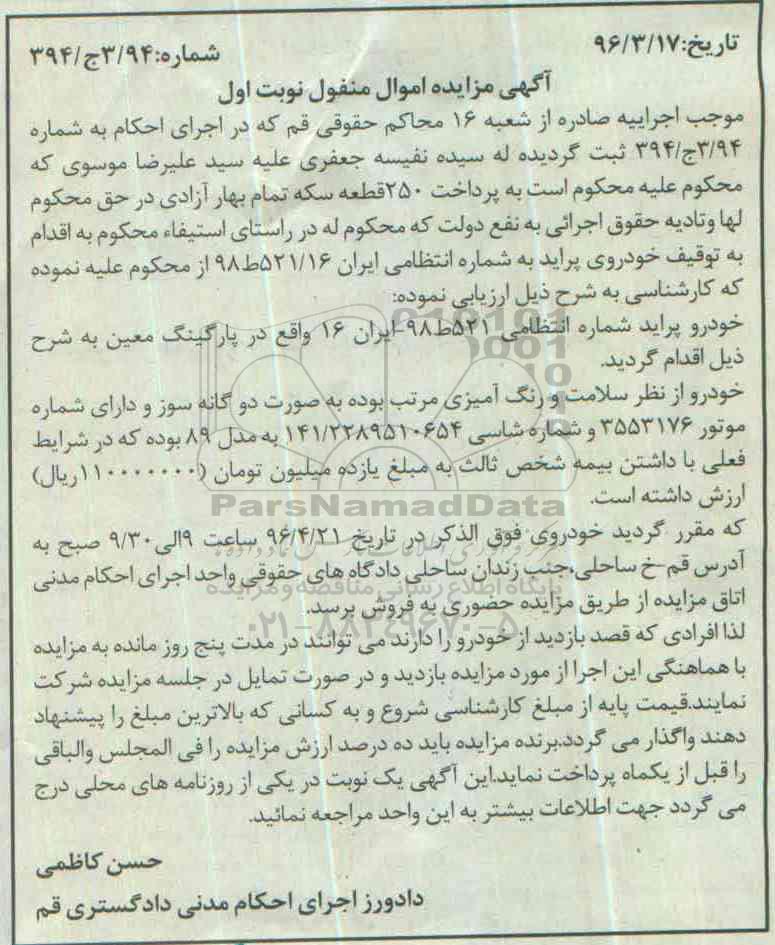 تاریخ:۹۶/۳/۱۷
شماره:۳/۹۴ج/۳۹۴
آگهی مزایده اموال منفول نوبت اول
موجب اجراییه صادره از شعبه ۱۶ محاکم حقوقی قم که در اجرای احکام به شماره
۳/۹۴ج/۳۹۴ ثبت گردیده له سیده نفیسه جعفری علیه سید علیرضا موسوی که
محکوم علیه محکوم است به پرداخت ۲۵۰قطعه سکه تمام بهار آزادی در حق محکوم
لها وتادیه حقوق اجرائی به نفع دولت که محکوم له در راستای استیفاء محکوم به اقدام
به توقیف خودروی پراید به شماره انتظامی ایران ۵۲۱/۱۶ط۹۸ از محکوم علیه نموده
که کارشناسی به شرح ذیل ارزیابی نموده:
خودرو پراید شماره انتظامی ۵۲۱ط۹۸-ایران ۱۶ واقع در پارگینگ معین به شرح
ذیل اقدام گردید.
خودرو از نظر سلامت و رنگ آمیزی مرتب بوده به صورت دو گانه سوز و دارای شماره
موتور ۳۵۵۳۱۷۶ و شماره شاسی ۱۴۱/۲۲۸۹۵۱۰۶۵۴ به مدل ۸۹ بوده که در شرایط
فعلی با داشتن بیمه شخص ثالث به مبلغ یازده میلیون تومان (۱۱۰۰۰۰۰۰۰ریال)
ارزش داشته است.
ParsNamadData
که مقرر گردید خودروی فوق الذکر در تاریخ ۹۶/۴/۲۱ ساعت ۹الی۹/۳۰ صبح به
آدرس قم-خ ساحلی،جنب زندان ساحلی دادگاه های حقوقی واحد اجرای احکام مدنی
پایگاه اطلاع رسانی مناقصه و مزایده
اتاق مزایده از طریق مزایده حضوری به فروش برسد.
۰۲۱-۸۸۳۴۹۶۷۰-۵
لذا افرادی که قصد بازدید از خودرو را دارند می توانند در مدت پنج روز مانده به مزایده
با هماهنگی این اجرا از مورد مزایده بازدید و در صورت تمایل در جلسه مزایده شرکت
نمایند.قیمت پایه از مبلغ کارشناسی شروع و به کسانی که بالاترین مبلغ را پیشنهاد
دهند واگذار می گردد.برنده مزایده باید ده درصد ارزش مزایده را فی المجلس والباقی
را قبل از یکماه پرداخت نماید.این آگهی یک نوبت در یکی از روزنامه های محلی درج
می گردد جهت اطلاعات بیشتر به این واحد مراجعه نمائید.
حسن کاظمی
دادورز اجرای احکام مدنی دادگستری قم